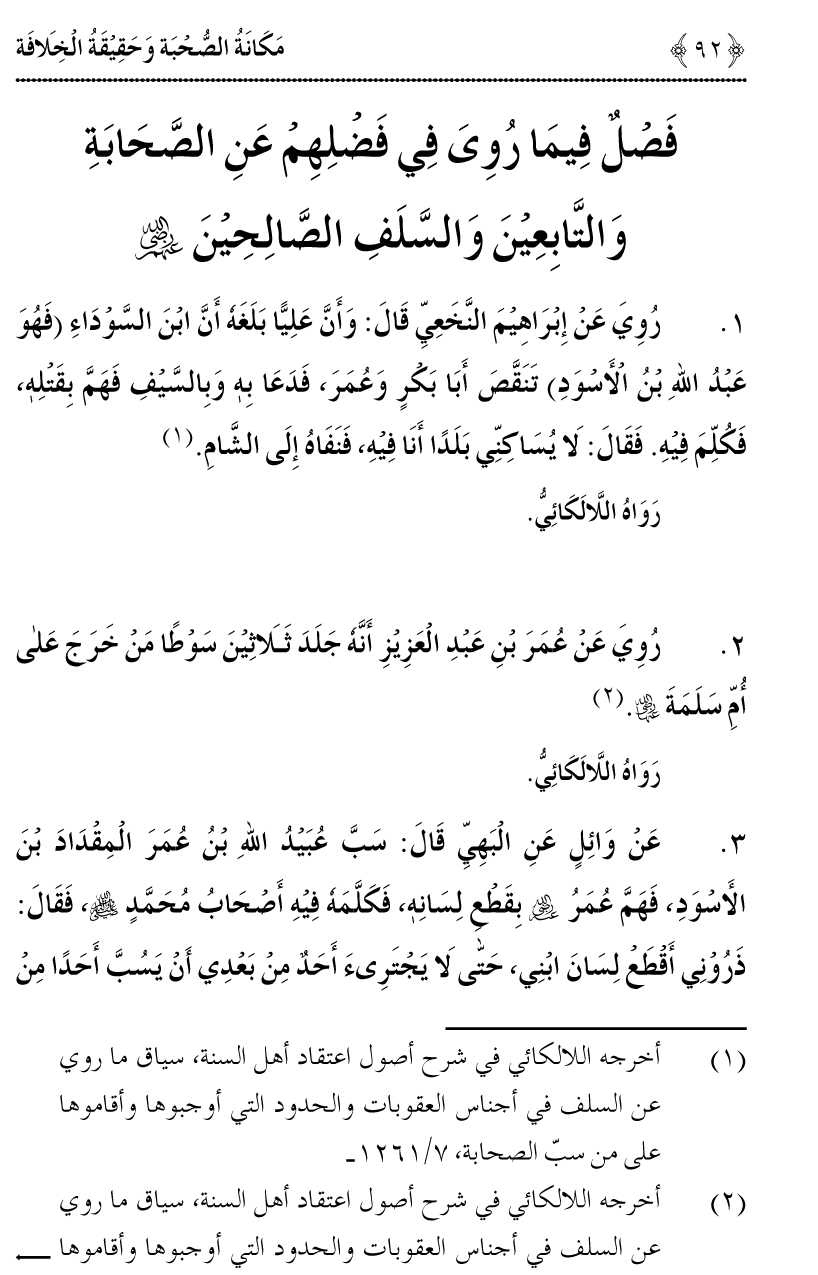 ﴿٩٢﴾ مَكَانَةُ الصُّحْبَة وَحَقِيْقَةُ الْخِلَافَة
فَصْلٌ فِيمَا رُوِىَ فِي فَضْلِهِمْ عَنِ الصَّحَابَةِ
وَالتَّابِعِيْنَ وَالسَّلَفِ الصَّالِحِيْنَ رضي الله عنهم
١. رُوِيَ عَنْ إِبْرَاهِيْمَ النَّخَعِيِّ قَالَ: وَأَنَّ عَلِيًّا بَلَغَهٗ أَنَّ ابْنَ السَّوْدَاءِ (فَهُوَ
عَبْدُ اللهِ بْنُ الْأَسْوَدِ) تَنَقَّصَ أَبَا بَكْرٍ وَعُمَرَ، فَدَعَا بِهٖ وَبِالسَّيْفِ فَهَمَّ بِقَتْلِهٖ،
فَكُلِّمَ فِيْهِ. فَقَالَ: لَا يُسَاكِنِّي بَلَدًا أَنَا فِيْهِ، فَنَفَاهُ إِلَى الشَّامِ.(١)
رَوَاهُ اللَّالَكَائِيُّ.
٢. رُوِيَ عَنْ عُمَرَ بْنِ عَبْدِ الْعَزِيْزِ أَنَّهٗ جَلَدَ ثَلَاثِيْنَ سَوْطًا مَنْ خَرَجَ عَلٰى
أُمِّ سَلَمَةَ رضي الله عنها.(٢)
رَوَاهُ اللَّالَكَائِيُّ.
٣. عَنْ وَائِلٍ عَنِ الْبَهِيِّ قَالَ: سَبَّ عُبَيْدُ اللهِ بْنُ عُمَرَ الْمِقْدَادَ بْنَ
الْأَسْوَدِ، فَهَمَّ عُمَرُ رضي الله عنه بِقَطْعِ لِسَانِهٖ، فَكَلَّمَهٗ فِيْهِ أَصْحَابُ مُحَمَّدٍ ﷺ، فَقَالَ:
ذَرُوْنِي أَقْطَعْ لِسَانَ ابْنِي، حَتّٰى لَا يَجْتَرِىءَ أَحَدٌ مِنْ بَعْدِي أَنْ يَسُبَّ أَحَدًا مِنْ
(١) أخرجه اللالكائي في شرح أصول اعتقاد أهل السنة، سياق ما روي
عن السلف في أجناس العقوبات والحدود التي أوجبوها وأقاموها
على من سبّ الصحابة، ٧/١٢٦١ـ
(٢) أخرجه اللالكائي في شرح أصول اعتقاد أهل السنة، سياق ما روي
عن السلف في أجناس العقوبات والحدود التي أوجبوها وأقاموها